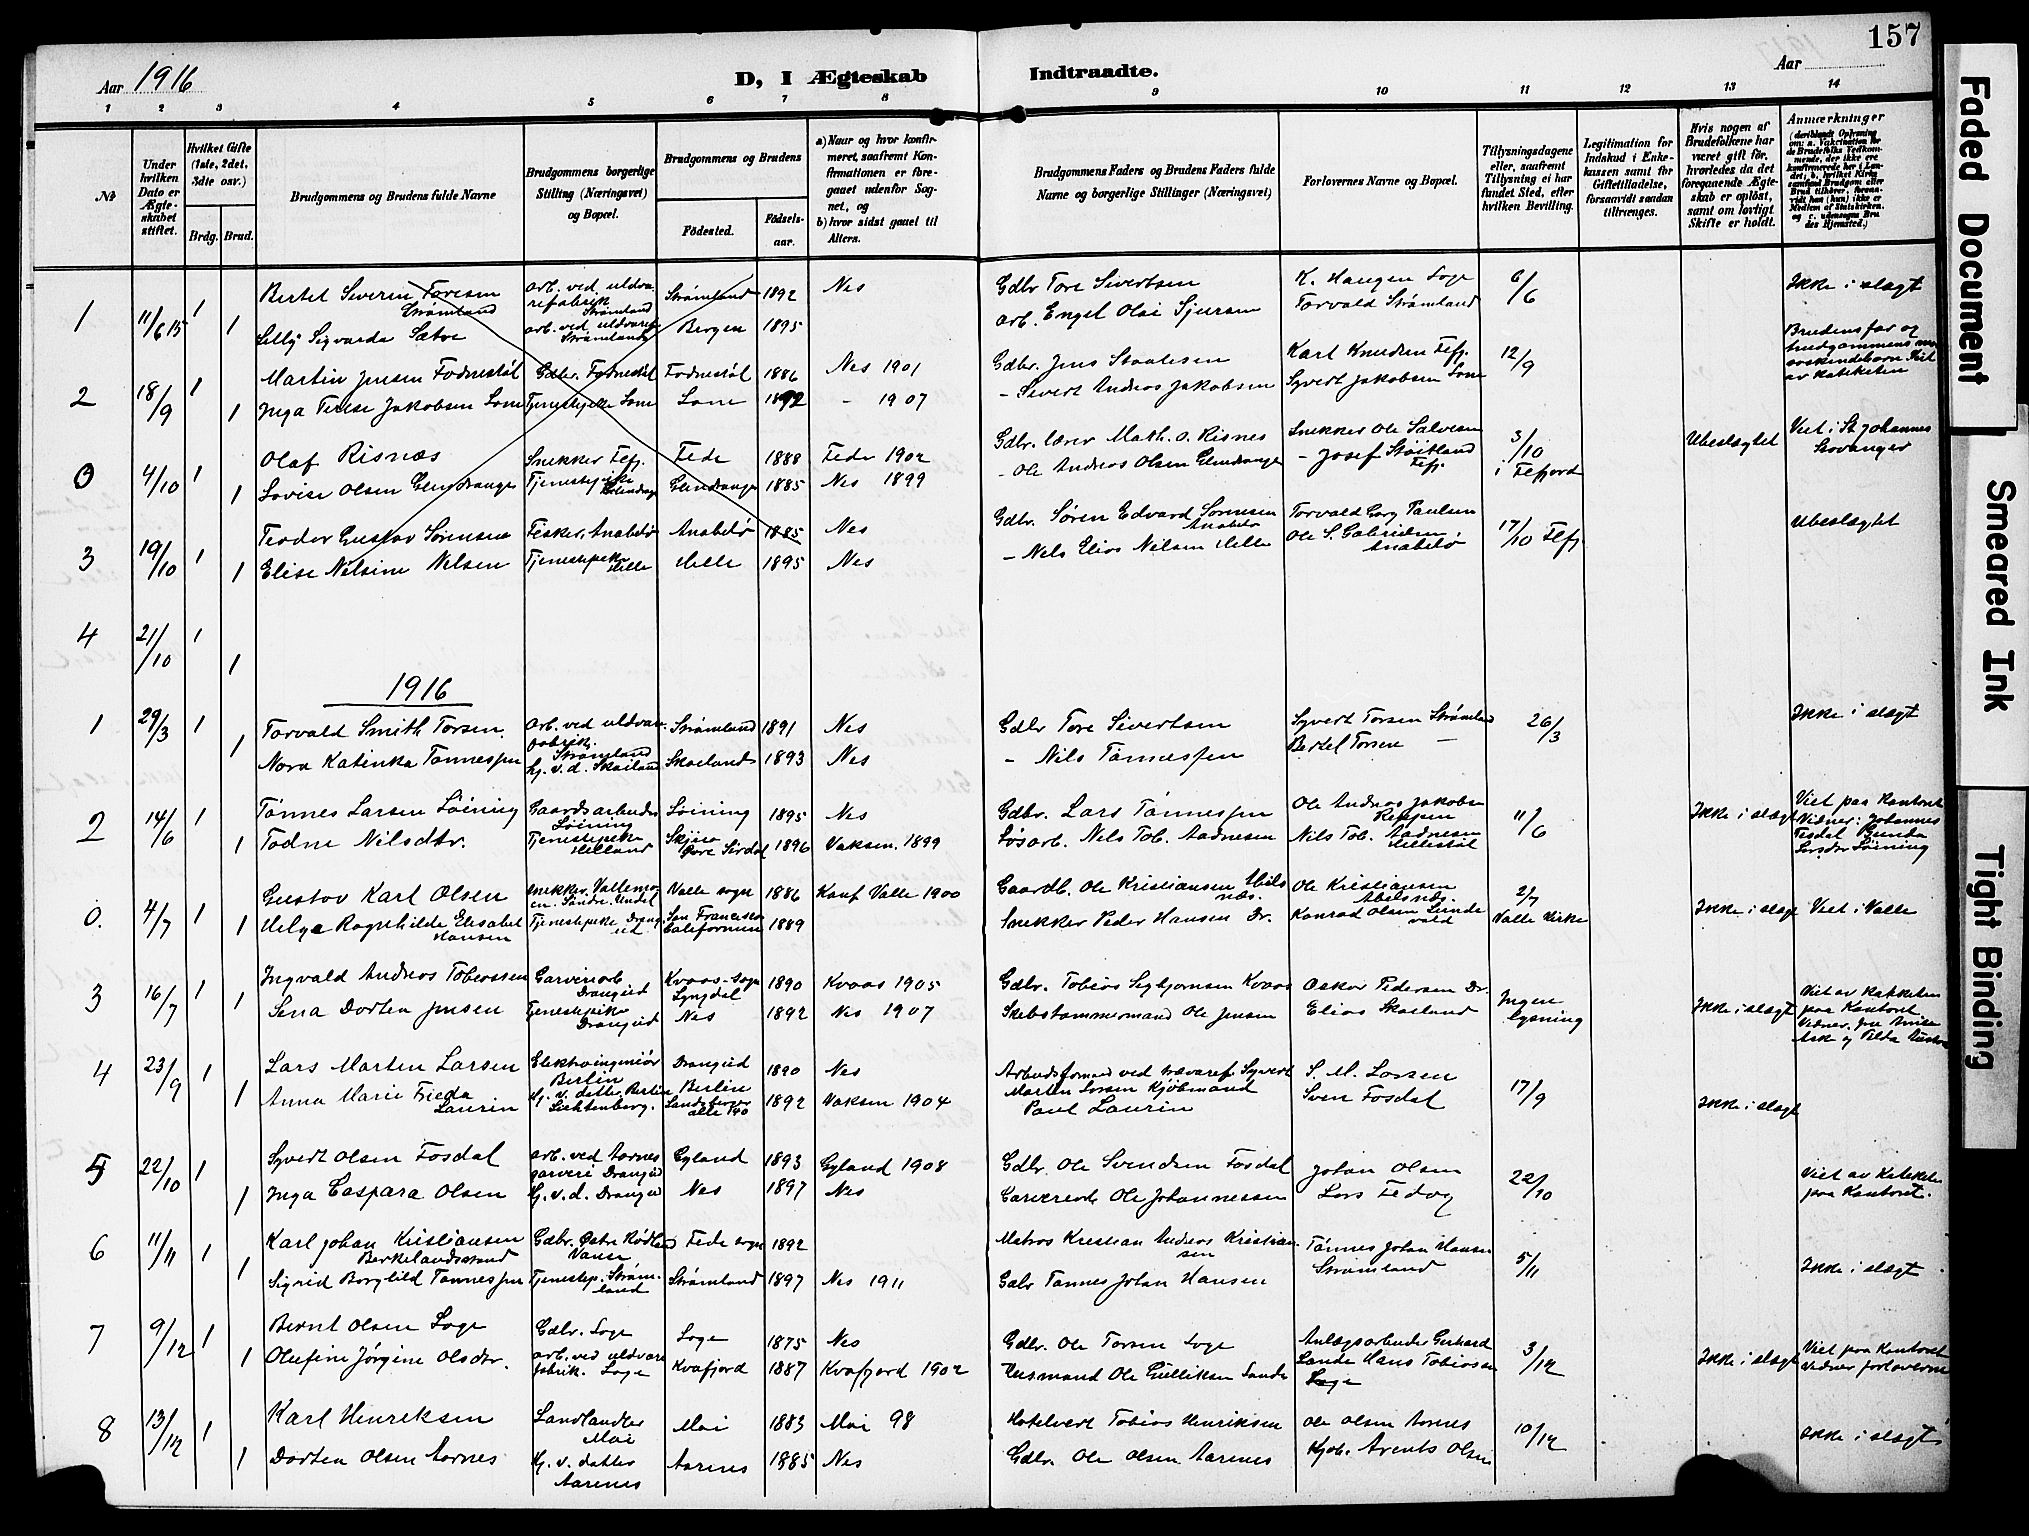 157
Aar 1916
D, I Ægteskab Indtraadte.
Aar
1 2 3 4 5 6 7 8 9 10 11 12 13 14
№
Under hvilken Dato er Ægteskabet stiftet.
Hvilket Gifte (1ste, 2det, 3dte osv.)
Brdg. Brud.
Brudgommens og Brudens fulde Navne
Brudgommens borgerlige Stilling (Næringsvei) og Bopæl.
Brudgommens og Brudens
Fødested.
Fødselsaar.
a) Naar og hvor konfirmeret, saafremt Konfirmationen er foregaaet udenfor Sognet, og
b) hvor sidst gaaet til Alters.
Brudgommens Faders og Brudens Faders fulde Navne og borgerlige Stillinger (Næringsvei)
Forlovernes Navne og Bopæl.
Tillysningsdagene eller, saafremt Tillysning ei har fundet Sted, efter hvilken Bevilling.
Legitimation for Indskud i Enkekassen samt for Giftetilladelse, forsaavidt saadan tiltrænges.
Hvis nogen af Brudefolkene har været gift før, hvorledes da det foregaaende Ægteskab er opløst, samt om lovligt Skifte er holdt.
Anmærkninger
1 11/6 15 1 Bertel Severin Toresen Strømland arb. ved uldvarefabrik Strømland Strømland 1892 Nes Gdbr Tore Sivertsen K. Haugen Loge 6/6 Ikke i slægt
1 Lelly Sigvarda Sætve arb. ved uldvaref. Strømland Bergen 1895 arb. Engel Olai Sjursen Torvald Strømland
2 18/9 1 Martin Jensen Fodnestøl Gdbr. Fodnestøl Fodnestøl 1886 Nes 1901 Gdbr. Jens Staalesen Karl Knudsen Fefj. 12/9 Brudens far og brudgommens
1 Inga Terese Jakobsen Lone Tjenestpike Lone Lone 1892 - 1907 - Sivert Andreas Jakobsen Syvert Jakobsen Lone av kateketen
0 4/10 1 Olaf Risnæs Snekker Fefj. Fede 1888 Fede 1902 Gdbr. lærer Math. O. Risnes Snekker Ole Salvesen 3/10 i Fefjord Ubeslægtet Viet i St Johannes Stavanger
1 Lovise Olsen Glendrange Tjenestpike Glendrange Glendrange 1885 Nes 1899 - Ole Andreas Olsen Glendrange - Josef Støitland Fefj.
3 19/10 1 Teodor Gustav Sørensen Fisker, Anabelø Anabelø 1885 Nes Gdbr. Søren Edvard Sørensen Anabelø Torvald Georg Paulsen 17/10 Fefj Ubeslægtet
1 Elise Nelsine Nelsen Tjenestepike Helle Helle 1895 Nes - Nels Elias Nilsen Helle Ole S. Gabrielsen Anabelø
4 21/10 1 1
1916
1 29/3 1 Torvald Smith Torsen. arb. ved uldvarefabrik. Strømland Strømland 1891 Nes Gdbr Tore Sivertsen Syvert Torsen Strømland 26/3 Ikke i slægt
1 Nora Katinka Tønnessen hj. v. d. Skailand Skailand 1893 Nes - Nils Tønnessen Bertel Torsen -
2 14/6 1 Tønnes Larsen Løining Gaardsarbeider Løining Løining 1895 Nes Gdbr. Lars Tønnessen Ole Andreas Jakobsen 11/6 Ikke i slægt Viet paa Kontoret Vidner: Johannes Tesdal
1 Todne Nilsdtr. Tjenestpike Helland Øvre Sirdal 1896 Vaksen. 1899 Løsarb. Nils Tob. Aadnesen Nils Tob. Aadnesen Løining
0. 4/7 1 Gustav Karl Olsen snekker. Søndre Undal Valle sogn 1886 Konf Valle 1900 Gaardb. Ole Kristiansen Ole Kristiansen Abelsnes 2/7 Valle Kirke Ikke i slægt Viet i Valle
1 Helga Ragnhilde Elisabet Hansen Tjenestpike Drangeid San Francisco Californien 1889 Snekker Peder Hansen Dr. Konrad Olsen Sundevald
3 16/7 1 Ingvald Andreas Tobiassen Garveriarb. Drangeid Kvaas-sogn Lyngdal 1890 Kvaas 1905 Gdbr. Tobias Sigbjørnsen Kvaas Oskar Pedersen Dr. Ingen lysning Ikke i slægt Viet av Kateketen paa Kontoret
1 Sena Dorten Jensen Tjenestpike Drangeid Nes 1892 Nes 1907 Skibstømmermand Ole Jensen Elias Skailand
4 23/9 1 Lars Martin Larsen Elektroingeniør Berlin Drangeid 1890 Nes Arbeidsformand ved Syvert Martin Larsen Kjøbmand S. M. Larsen 17/9 Ikke i slægt
1 Anna Marie Frieda Laurin Hj. v. datter Berlin Lichtenberg. Berlin 1892 Vaksen 1904 Paul Laurin Sven Fosdal
5 22/10 1 Syvert Olsen Fosdal arb. ved Aarnes garveri Drangeid Gyland 1893 Gyland 1908 Gdbr. Ole Svendsen Fosdal Johan Olsen 22/10 Viet av Kateketen paa Kontoret.
1 Inga Caspara Olsen Hj. v. d. Drangeid Nes 1897 Nes Garveriarb. Ole Johannessen Lars Fedog
6 11/11 1 Karl Johan Kristiansen Berkelandsstrand Gdbr. Østre Rødland Vanse Fede sogn 1892 Matros Krestian Andreas Kristiansen Tønnes Johan Hansen Strømland 5/11 Ikke i slægt
1 Sigrid Borghild Tønnessen Tjenestep. Strømland Strømland 1897 Nes 1911 Gdbr Tønnes Johan Hansen
7 9/12 1 Bernt Olsen Loge Gdbr. Loge Loge 1875 Nes Gdbr. Ole Torsen Loge Anlægsarbeider Gerhard Sande 3/12 Ikke i slægt Viet paa Kontoret Vidner forloverne
1 Olufine Jørgine Olsdtr. arb. ved uldvarefabrik. Loge Kvafjord 1887 Kvafjord 1902 Husmand Ole Gulliksen Sande Hans Tobiassen Loge
8 13/12 1 Karl Henriksen Landhandler Moi Moi 1883 Moi 98 Hotelvert Tobias Henriksen Ole Olsen Aarnes 10/12 Ikke i slægt
1 Dorten Olsen Aarnes Hj. v. datter Aarenes Aarenes 1885 Nes Gdbr. Ole Olsen Aarenes Kjøb. Arents Olsen
Faded Document
Smeared Ink
Tight Binding